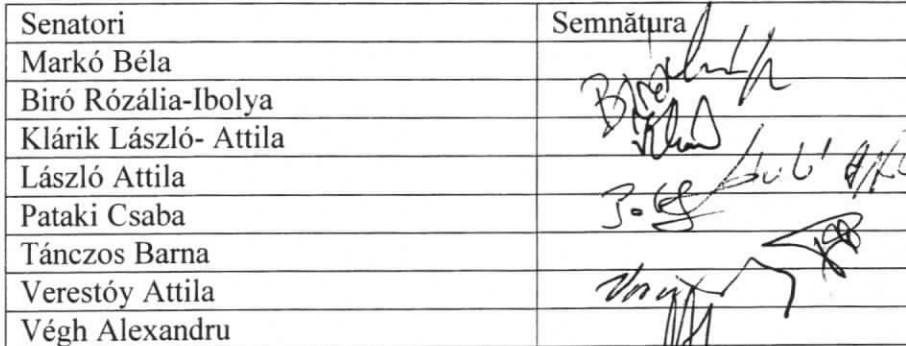 Senatori Semnătura
Markó Béla
Biró Rózália-Ibolya
Klárik László- Attila
László Attila
Pataki Csaba
Tánczos Barna
Verestóy Attila
Végh Alexandru